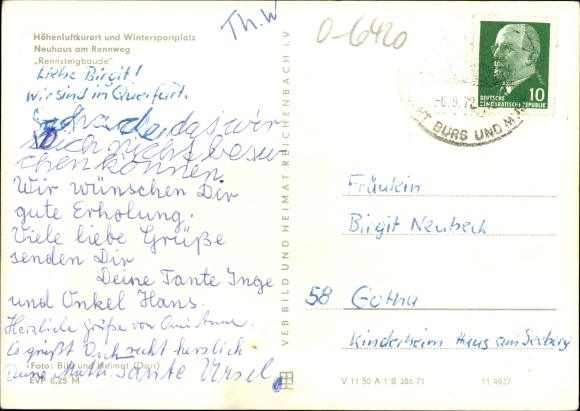 Th. W
0-6420
Höhenluftkurort und Wintersportplatz
Neuhaus am Rennweg
„Rennsteigbaude"
Liebe Birgit!
wir sind in Querfurt.
Schade, das wir
Dich nicht besu-
chen können.
Wir wünschen Dir
gute Erholung.
Viele liebe Grüße
senden Dir
Deine Tante Inge
und Onkel Hans.
Herzliche Grüße von Omi Anna.
Es grüßt Dich recht herzlich
Deine Tante Ursel
Foto: Bild und Heimat (Darr)
EVP 0,25 M
VEB BILD UND HEIMAT REICHENBACH I. V
-6.8.72
BURG UND
10
DEUTSCHE
DEMOKRATISCHE REPUBLIK
Fräulein
Birgit Neubeck
58 Gotha
Kinderheim Haus am Seeberg
V 11 50 A 1/B 386/71
11/4937